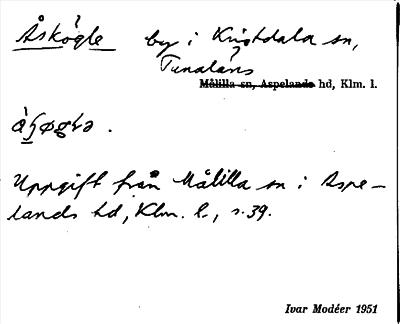 Åskögle by i Kristdala sn,
Tunaläns
Målilla sn, Aspelands hd, Klm. l.
Uppgift från Målilla sn i Aspe-
lands hd, Klm. l., s. 39.
Ivar Modéer 1951